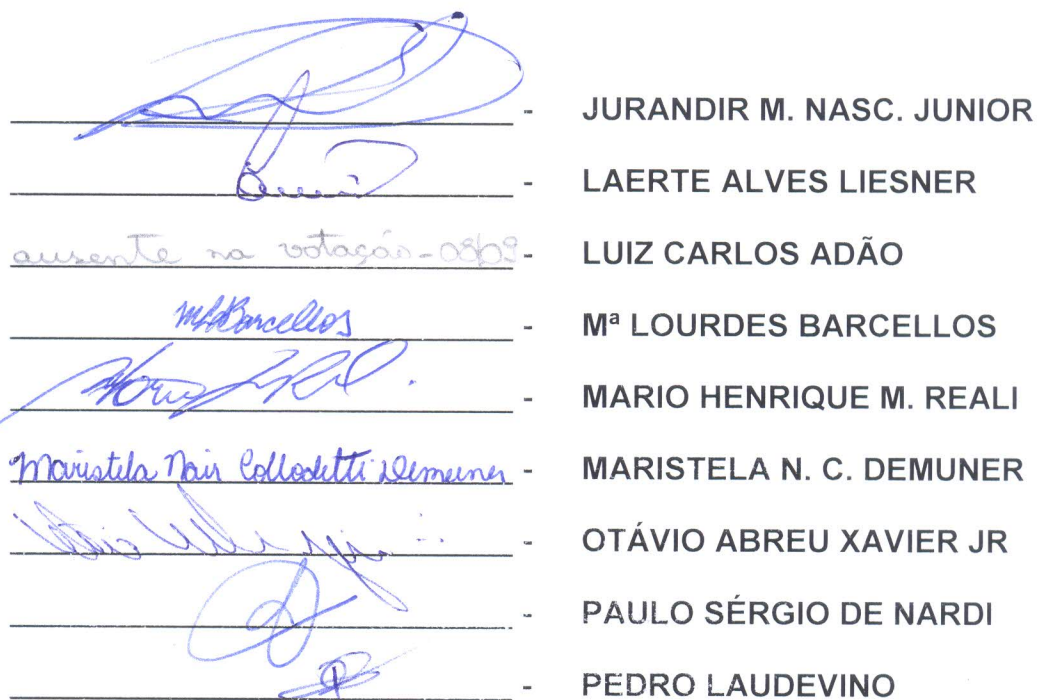 - JURANDIR M. NASC. JUNIOR
- LAERTE ALVES LIESNER
ausente na votação - 03/09 - LUIZ CARLOS ADÃO
MLBarcellos - Mª LOURDES BARCELLOS
- MARIO HENRIQUE M. REALI
Maristela Nair Collodetti Demuner - MARISTELA N. C. DEMUNER
- OTÁVIO ABREU XAVIER JR
- PAULO SÉRGIO DE NARDI
- PEDRO LAUDEVINO